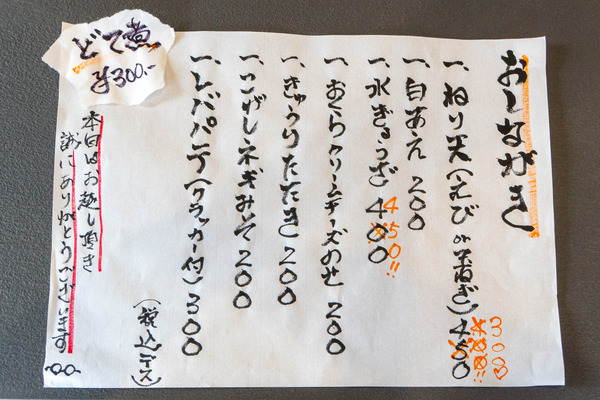 おしながき
一、ねり天(えび or 若ねぎ) 450 400!! 300♡
一、白あえ 200
一、水ぎょうざ 400 450!!
一、おくらクリームチーズのせ 200
一、きゅうりたたき 200
一、こがしネギみそ 200
一、レバパテ(クラッカー付) 300
(税込デス)
どて煮
¥300.-
本日はお越し頂き
誠にありがとうございます